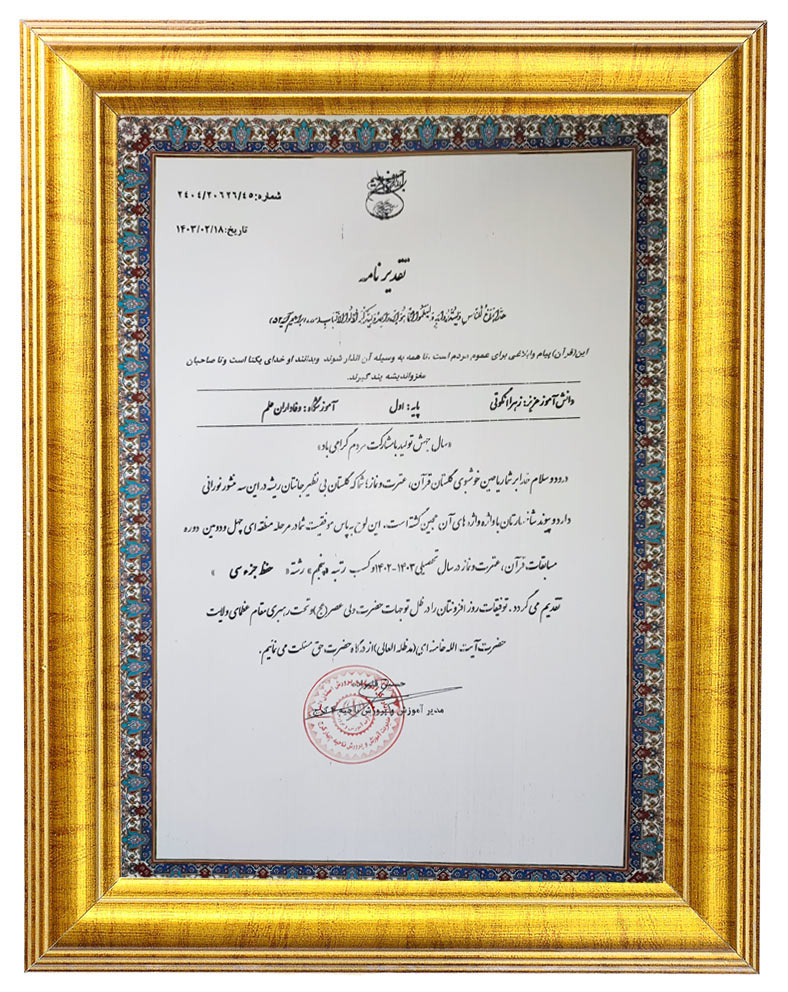 شماره:۲۴۰۴/۲۰۶۲۶/۴۵
تاریخ:۱۴۰۳/۰۲/۱۸
تقدیر نامه
هذا بلاغ للناس و لینذروا به و لیعلموا انما هو اله واحد و لیذکر اولوا الالباب ابراهیم آیه ۵۲
این(قرآن)پیام وابلاغی برای عموم مردم است ،تا همه به وسیله آن انذار شوند وبدانند او خدای یکتا است وتا صاحبان
مغزواندیشه پند گیرند.
دانش آموز عزیز: زهرا انگوتی پایه: اول آموزشگاه: وفاداران علم
«سال جهش تولید با مشارکت مردم گرامی باد»
درود و سلام خدا بر شما ریاحین خوشبوی گلستان قرآن، عترت و نماز؛ شما که گلستان بی نظیر جانتان ریشه در این سه منشور نورانی
دارد و پیوند شاخسارتان با واژه واژه های آن عجین گشته است. این لوح به پاس موفقیت شما در مرحله منطقه ای چهل و دومین دوره
مسابقات قرآن، عترت و نماز در سال تحصیلی ۱۴۰۳-۱۴۰۲و کسب رتبه «پنجم» رشته « حفظ جزء سی »
تقدیم می گردد. توفیقات روز افزونتان را در ظل توجهات حضرت ولی عصر(عج)و تحت رهبری مقام عظمای ولایت
حضرت آیت الله خامنه ای(مدظله العالی)از درگاه حضرت حق مسئلت می نمائیم.
مدیر آموزش و پرورش ناحیه ۴ کرج